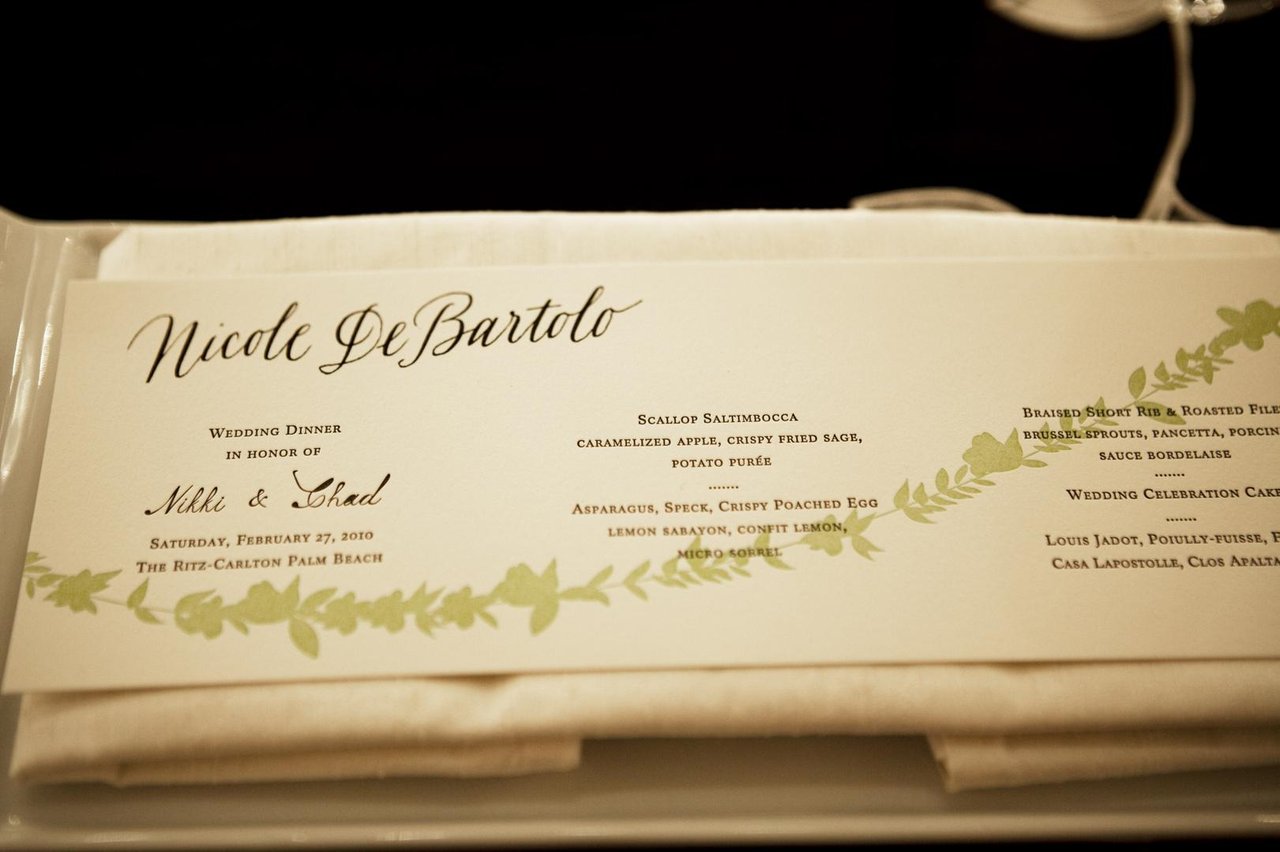 Nicole DeBartolo
Wedding Dinner
in honor of
Nikki & Chad
Saturday, February 27, 2010
The Ritz-Carlton Palm Beach
Scallop Saltimbocca
caramelized apple, crispy fried sage,
potato purée
.......
Asparagus, Speck, Crispy Poached Egg
lemon sabayon, confit lemon,
micro sorrel
Braised Short Rib & Roasted File
brussel sprouts, pancetta, porcin
sauce bordelaise
.......
Wedding Celebration Cake
.......
Louis Jadot, Poiully-fuisse, F
Casa Lapostolle, Clos Apalta